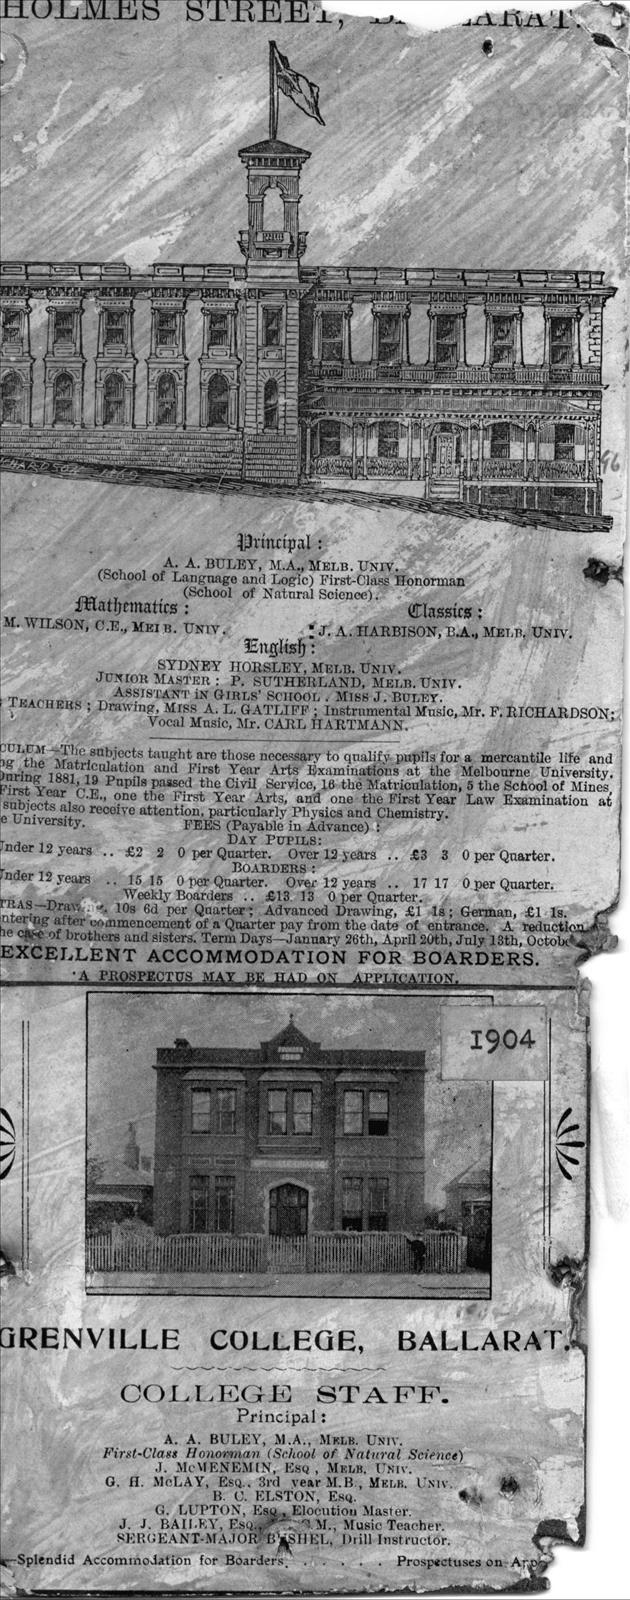 HOLMES STREET, BALLARAT.
Principal:
A. A. BULEY, M.A., MELB. UNIV.
(School of Language and Logic) First-Class Honorman
(School of Natural Science).
Mathematics: Classics:
M. WILSON, C.E., MELB. UNIV. J. A. HARBISON, B.A., MELB. UNIV.
English:
SYDNEY HORSLEY, MELB. UNIV.
JUNIOR MASTER: P. SUTHERLAND, MELB. UNIV.
ASSISTANT IN GIRLS' SCHOOL. MISS J. BULEY.
TEACHERS; Drawing, MISS A. L. GATLIFF; Instrumental Music, Mr. F. RICHARDSON;
Vocal Music, Mr. CARL HARTMANN.
CULUM—The subjects taught are those necessary to qualify pupils for a mercantile life and
ng the Matriculation and First Year Arts Examinations at the Melbourne University.
During 1881, 19 Pupils passed the Civil Service, 16 the Matriculation, 5 the School of Mines,
First Year C.E., one the First Year Arts, and one the First Year Law Examination at
subjects also receive attention, particularly Physics and Chemistry.
e University. FEES (Payable in Advance):
DAY PUPILS:
Under 12 years .. £2 2 0 per Quarter. Over 12 years .. £3 3 0 per Quarter.
BOARDERS:
Under 12 years .. 15 15 0 per Quarter. Over 12 years .. 17 17 0 per Quarter.
Weekly Boarders .. £13 13 0 per Quarter.
TRAS—Drawing, 10s 6d per Quarter; Advanced Drawing, £1 1s; German, £1 1s.
ntering after commencement of a Quarter pay from the date of entrance. A reduction
he case of brothers and sisters. Term Days—January 26th, April 20th, July 13th, Octob
EXCELLENT ACCOMMODATION FOR BOARDERS.
A PROSPECTUS MAY BE HAD ON APPLICATION.
1904
GRENVILLE COLLEGE, BALLARAT.
COLLEGE STAFF.
Principal:
A. A. BULEY, M.A., MELB. UNIV.
First-Class Honorman (School of Natural Science)
J. McMENEMIN, ESQ, MELB. UNIV.
G. H. McLAY, ESQ., 3rd year M.B., MELB. UNIV.
B. C. ELSTON, ESQ.
G. LUPTON, ESQ, Elocution Master.
J. J. BAILEY, ESQ., M., Music Teacher.
SERGEANT-MAJOR BUSHEL, Drill Instructor.
Splendid Accommodation for Boarders. . . . . . Prospectuses on App